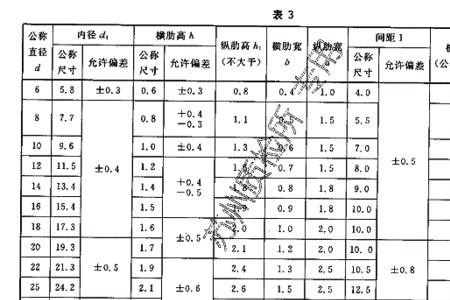 表 3
公称直径 d 内径 d₁ 横肋高 h 纵肋高 h₁ (不大于) 横肋宽 b 纵肋宽 间距 l
公称尺寸 允许偏差 公称尺寸 允许偏差 公称尺寸 允许偏差 (公
6 5.8 ±0.3 0.6 ±0.3 0.8 0.4 1.0 4.0 ±0.5
8 7.7 ±0.4 0.8 +0.4 −0.3 1.1 1.5 5.5
10 9.6 1.0 ±0.4 1.3 0.6 1.5 7.0
12 11.5 1.2 +0.4 −0.5 0.7 1.5 8.0
14 13.4 1.4 0.8 1.8 9.0
16 15.4 1.5 0.9 1.8 10.0
18 17.3 1.6 ±0.5 1.0 2.0 10.0
20 19.3 ±0.5 1.7 2.1 1.2 2.0 10.0 ±0.8
22 21.3 1.9 ±0.6 2.4 1.3 2.5 10.5
25 24.2 2.1 2.6 1.5 2.5 12.5